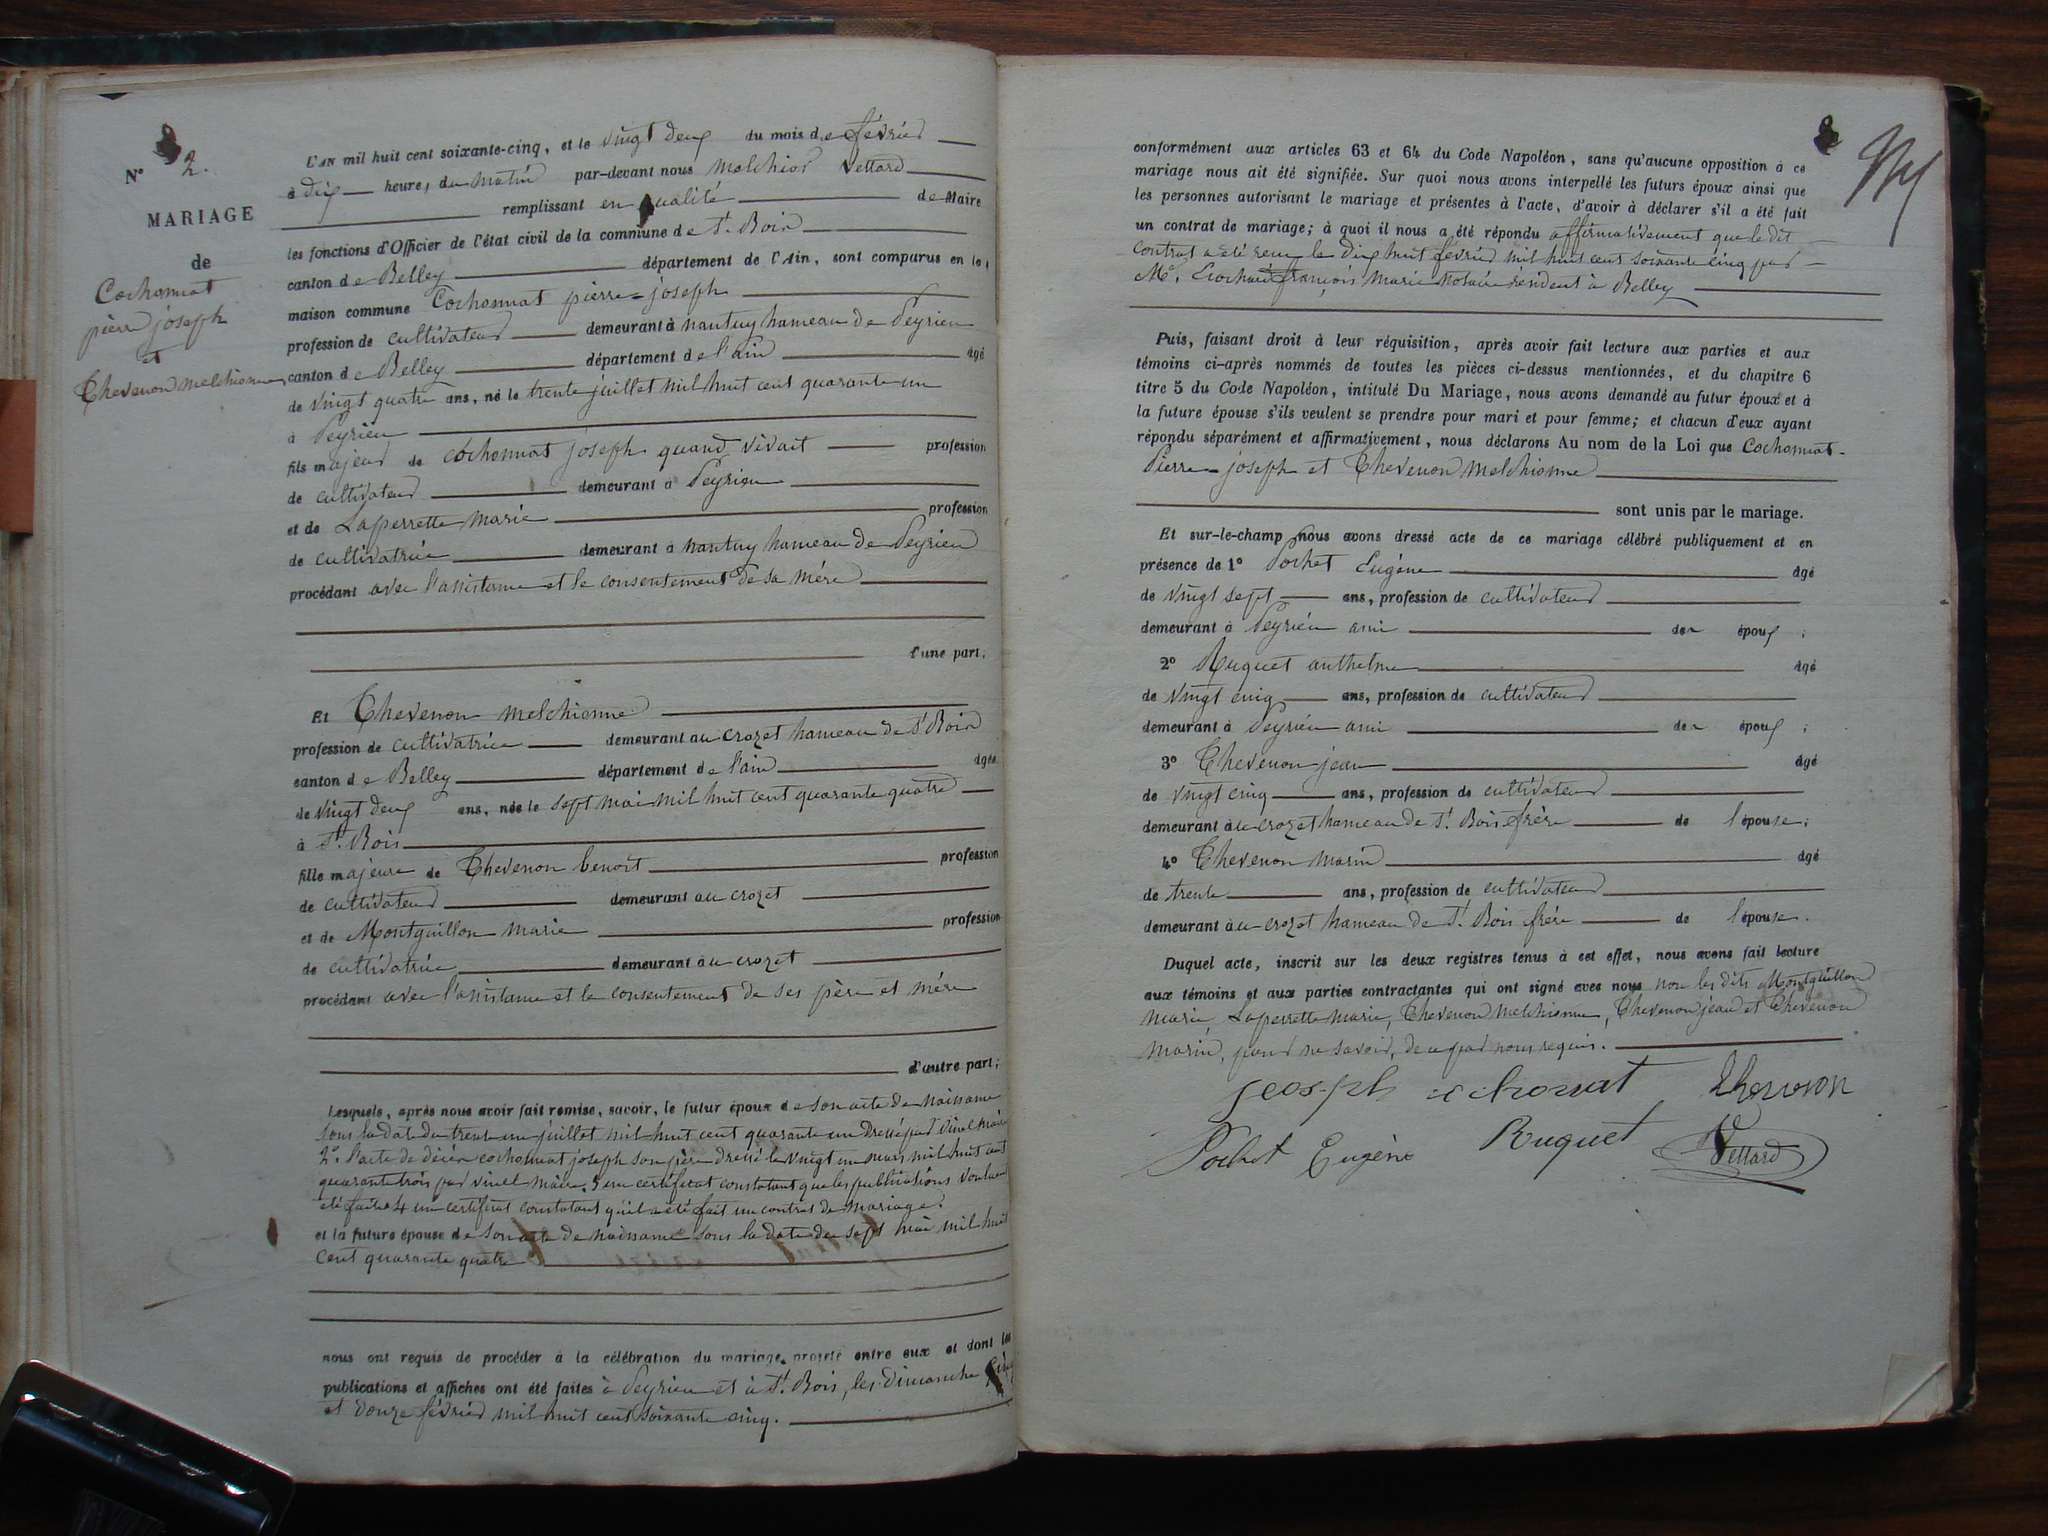 N° 2.
MARIAGE
de
Cochonnat
pierre joseph
et
Thevenon melchionne
L'AN mil huit cent soixante-cinq, et le vingt deux du mois de février
à dix heure, du matin par-devant nous melchior Vettard
remplissant en qualité de Maire
les fonctions d'Officier de l'état civil de la commune de St. Bois
canton de Belley département de l'Ain, sont comparus en la
maison commune Cochonnat pierre-joseph
profession de cultivateur demeurant à nantuy hameau de Peyrieu
canton de Belley département de l'ain âgé
de vingt quatre ans, né le trente juillet mil huit cent quarante un
à Peyrieu
fils majeur de cochonnat joseph quand vivait profession
de cultivateur demeurant à Peyrieu
et de Laperrette marie profession
de cultivatrice demeurant à nantuy hameau de Peyrieu
procédant avec l'assistance et le consentement de sa mére
d'une part;
Et Thevenon melchionne
profession de cultivatrice demeurant au crozet hameau de St Bois
canton de Belley département de l'ain âgée
de vingt deux ans, née le sept mai mil huit cent quarante quatre
à St. Bois
fille majeure de Thevenon benoit profession
de cultivateur demeurant au crozet
et de Montguillon marie profession
de cultivatrice demeurant au crozet
procédant avec l'assistance et le consentement de ses père et mére
d'autre part;
Lesquels, après nous avoir fait remise, savoir, le futur époux de son acte de naissance
sous la date du trente un juillet mil huit cent quarante un dressé par vinel maire
2° l'acte de décès cochonnat joseph son père dressé le vingt un mars mil huit cent
quarante trois par vinel maire. 3 un certificat constatant que les publications voulues
été faites 4 un certificat constatant qu'il a été fait un contrat de mariage.
et la future épouse de son acte de naissance sous la date du sept mai mil huit
cent quarante quatre
nous ont requis de procéder à la célébration du mariage projeté entre eux et dont les
publications et affiches ont été faites à Peyrieu et à St. Bois, les dimanche cinq
et douze février mil huit cent soixante cinq.
conformément aux articles 63 et 64 du Code Napoléon, sans qu'aucune opposition à ce
mariage nous ait été signifiée. Sur quoi nous avons interpellé les futurs époux ainsi que
les personnes autorisant le mariage et présentes à l'acte, d'avoir à déclarer s'il a été fait
un contrat de mariage; à quoi il nous a été répondu affirmativement que le dit
contrat a été reçu le dix huit février mil huit cent soixante cinq par
Me. françois marie notaire résident à Belley
Puis, faisant droit à leur réquisition, après avoir fait lecture aux parties et aux
témoins ci-après nommés de toutes les pièces ci-dessus mentionnées, et du chapitre 6
titre 5 du Code Napoléon, intitulé Du Mariage, nous avons demandé au futur époux et à
la future épouse s'ils veulent se prendre pour mari et pour femme; et chacun d'eux ayant
répondu séparément et affirmativement, nous déclarons Au nom de la Loi que Cochonnat
Pierre-joseph et Thevenon melchionne
sont unis par le mariage.
Et sur-le-champ nous avons dressé acte de ce mariage célébré publiquement et en
présence de 1° Pochet Eugéne âgé
de vingt sept ans, profession de cultivateur
demeurant à Peyrieu ami des époux;
2° Ruquet anthelme âgé
de vingt cinq ans, profession de cultivateur
demeurant à Peyrieu ami des époux;
3° Thevenon jean âgé
de vingt cinq ans, profession de cultivateur
demeurant au crozet hameau de St. Bois frère de l'épouse;
4° Thevenon marin âgé
de trente ans, profession de cultivateur
demeurant au crozet hameau de St. Bois frére de l'épouse.
Duquel acte, inscrit sur les deux registres tenus à cet effet, nous avons fait lecture
aux témoins et aux parties contractantes qui ont signé avec nous non les dits Montguillon
marie, Laperrette marie, Thevenon melchionne, Thevenon jean et Thevenon
marin, pour ne savoir, de ce par nous requis.
joseph cochonnat Thevenon
Pochet Eugène Ruquet Vettard